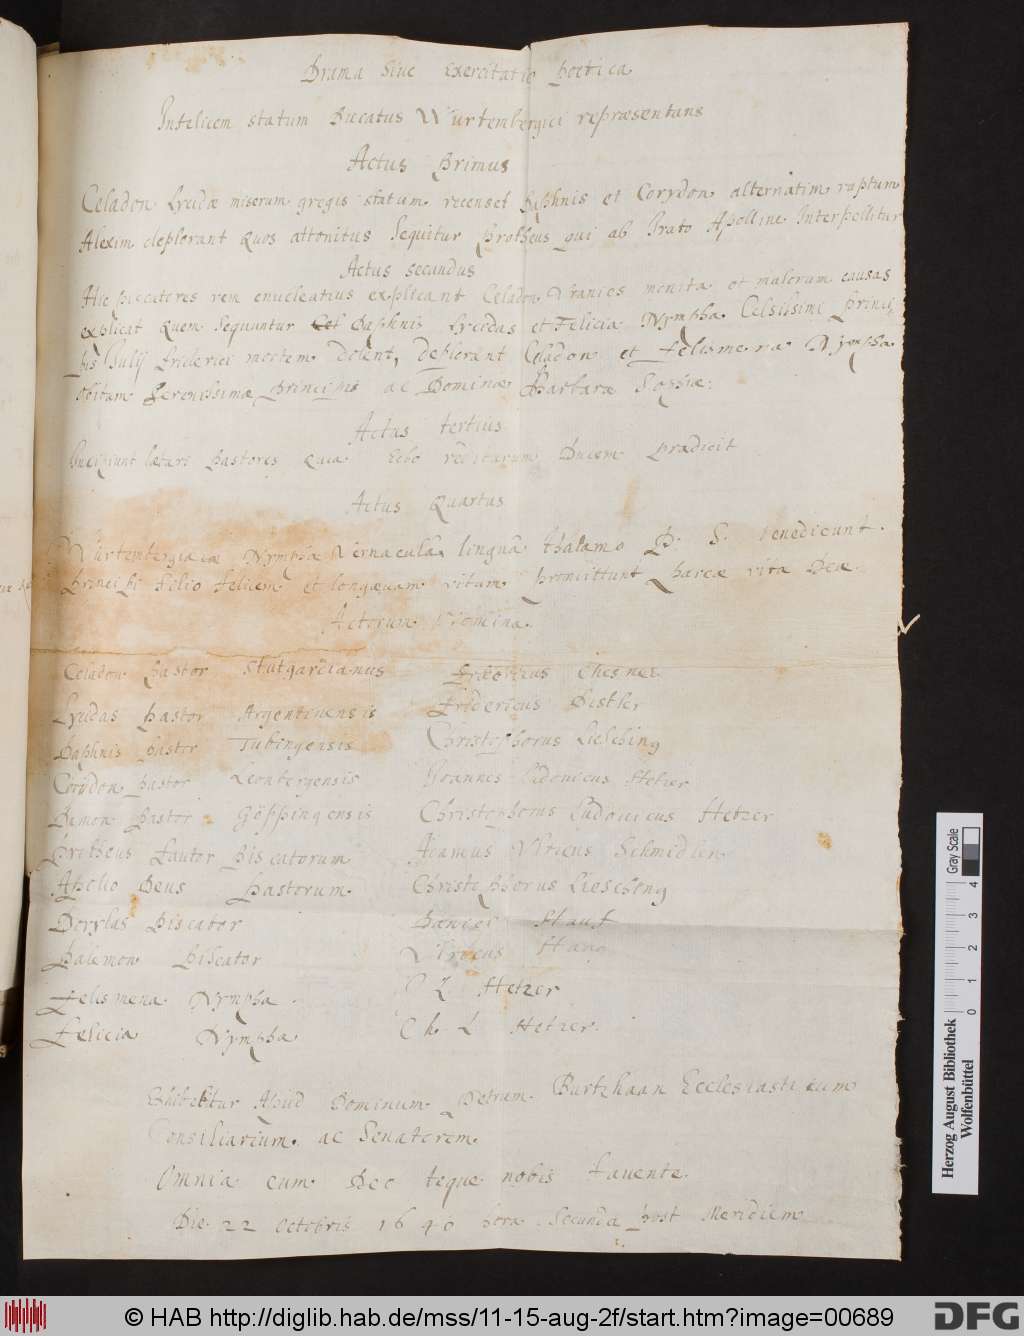 Drama Siue Exercitatio Poetica
Infelicem statum Ducatus Würtembergici repræsentans
Actus Primus
Celadon Lycidæ miserum gregis statum recenset Daphnis et Corydon alternatim raptum
Alexim deplorant quos attonitus Sequitur Protheus qui ab Irato Apolline Interpellitur
Actus secundus
Hic piscatores rem enucleatius explicant Celadon Vranies monita et malorum causas
explicat quem Sequuntur Daphnis Lycidas et Felicia Nympha Celsissimi Princi,
pis Julij friderici mortem dolent, deplorant Celadon et felismena Nympha
obitum Serenissimæ principis ac Dominæ Barbaræ Sophiæ:
Actus tertius
Incipiunt lætari pastores quia Echo rediturum Ducem prædicit
Actus Quartus
Würtembergiacæ Nymphæ Vernaculâ linguâ thalamo P. S. benedicunt.
Principi Filio felicem et longævam vitam promittunt parcæ vitæ Deæ.
Actorum Nomina.
Celadon pastor Stutgardianus Fridericus Chesnei
Lycidas pastor Argentinensis Fridericus Distler
Daphnis pastor Tubingensis Christophorus Liesching
Corydon pastor Leonbergensis Joannes Ludouicus Hetzer
Damon Pastor Göppingensis Christophorus Ludouicus Hetzer
protheus fautor piscatorum Vlricus Schmidlin
Apollo Deus pastorum Christophorus Liesching
Dorylas Piscator Stauf
Palemon Piscator Vlricus Hang
Felismena Nympha L Hetzer
Felicia Nympha Ch. L Hetzer.
Exhibebitur Apud Dominum Petrum Burtzhaan Ecclesiasticum
Consiliarium ac Senatorem
Omnia cum Deo teque nobis fauente.
Die 22 Octobris 1640 hora Secunda post Meridiem
Gray Scale
0 1 2 3 4
Herzog August Bibliothek
Wolfenbüttel
© HAB http://diglib.hab.de/mss/11-15-aug-2f/start.htm?image=00689
DFG